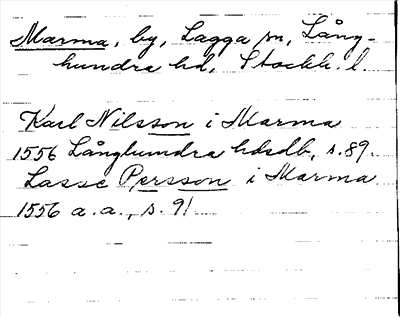 Marma, by, Lagga sn, Lång-
hundra hd, Stockh. l.
Karl Nilsson i Marma
1556 Långhundra hdsdb, s. 89.
Lasse Persson i Marma
1556 a. a., s. 91